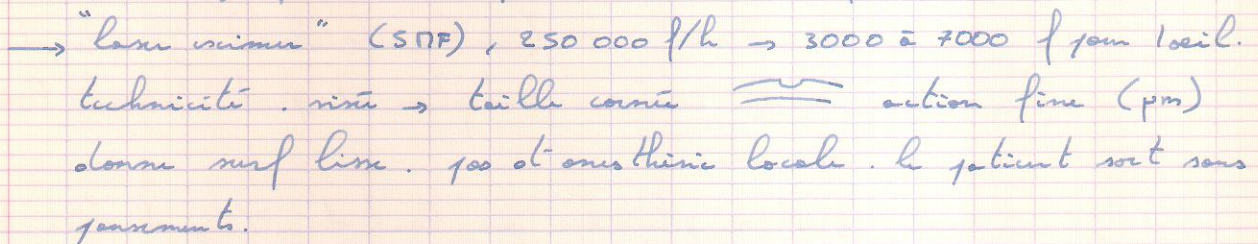 → "laser excimer" (5 MF), 250 000 f/h → 3000 à 7000 f pour 1 oeil.
technicité. → taille cornée action fine (µm)
donne surf lisse. pas d'anesthésie locale. le patient sort sans
pansements.